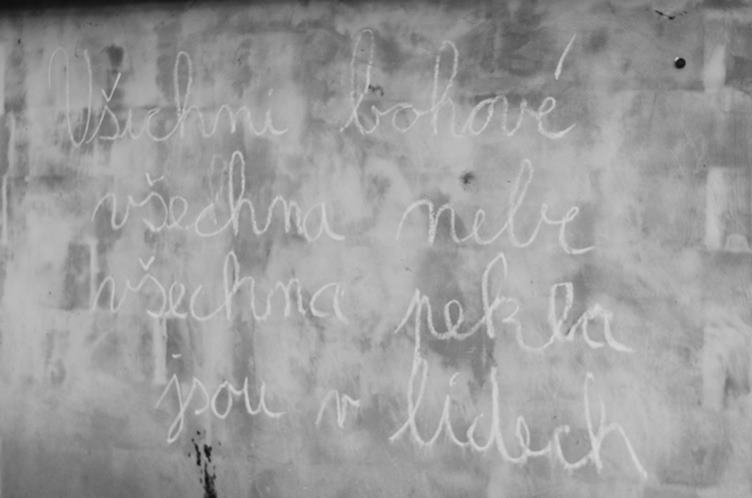 Všichni bohové
všechna nebe
všechna pekla
jsou v lidech